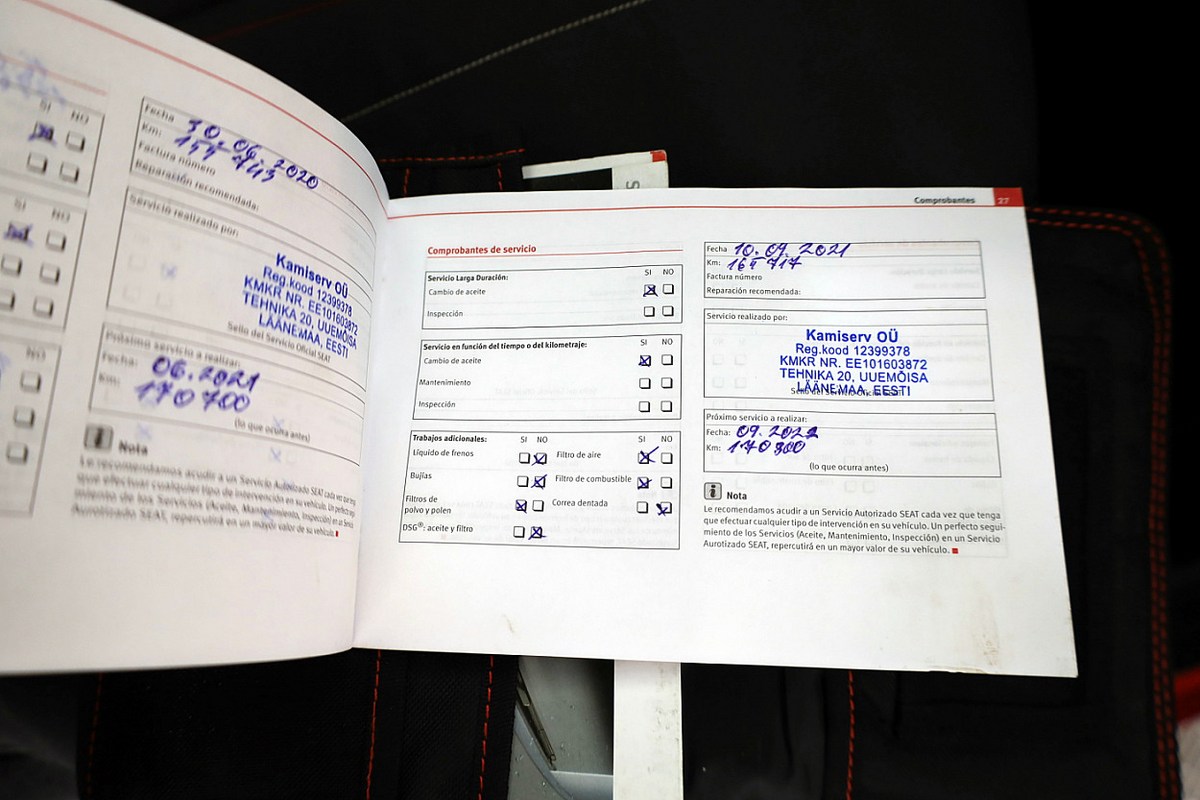 SI NO
SI NO
NO
Fecha 30.06.2020
Km: 155 743
Factura número
Reparación recomendada:
Servicio realizado por:
Kamiserv OÜ
Reg.kood 12399378
KMKR NR. EE101603872
TEHNIKA 20, UUEMÕISA
LÄÄNEMAA, EESTI
Sello del Servicio Oficial SEAT
Próximo servicio a realizar:
Fecha: 06.2021
Km: 170 700
(lo que ocurra antes)
i Nota
Le recomendamos acudir a un Servicio Autorizado SEAT cada vez que tenga
que efectuar cualquier tipo de intervención en su vehículo. Un perfecto segui-
miento de los Servicios (Aceite, Mantenimiento, Inspección) en un Servicio
Aurotizado SEAT, repercutirá en un mayor valor de su vehículo.
Comprobantes 27
Comprobantes de servicio
Servicio Larga Duración: SI NO
Cambio de aceite
Inspección
Servicio en función del tiempo o del kilometraje: SI NO
Cambio de aceite
Mantenimiento
Inspección
Trabajos adicionales: SI NO SI NO
Líquido de frenos Filtro de aire
Bujías Filtro de combustible
Filtros de
polvo y polen Correa dentada
DSG®: aceite y filtro
Fecha 10.09.2021
Km: 165 717
Factura número
Reparación recomendada:
Servicio realizado por:
Kamiserv OÜ
Reg.kood 12399378
KMKR NR. EE101603872
TEHNIKA 20, UUEMÕISA
LÄÄNEMAA, EESTI
Sello del Servicio Oficial SEAT
Próximo servicio a realizar:
Fecha: 09.2022
Km: 170 900
(lo que ocurra antes)
i Nota
Le recomendamos acudir a un Servicio Autorizado SEAT cada vez que tenga
que efectuar cualquier tipo de intervención en su vehículo. Un perfecto segui-
miento de los Servicios (Aceite, Mantenimiento, Inspección) en un Servicio
Aurotizado SEAT, repercutirá en un mayor valor de su vehículo.